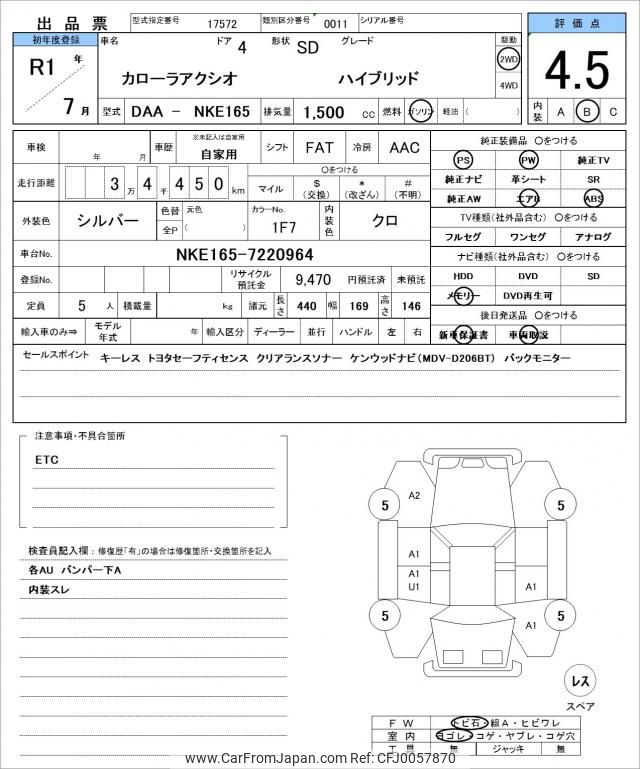 出品票 型式指定番号 17572 類別区分番号 0011 シリアル番号
評価点
4.5
内装 A B C
初年度登録
R1 年
7 月
車名 ドア 4 形状 SD グレード
カローラアクシオ ハイブリッド
駆動
2WD
4WD
型式 DAA － NKE165 排気量 1,500 cc 燃料 ガソリン 軽油 ( )
車検 年 月 車歴 ※未記入は自家用 自家用 シフト FAT 冷房 AAC
走行距離 3 万 4 千 4 5 0 km
〇をつける
マイル $ (交換) * (改ざん) # (不明)
外装色 シルバー 色替 元色 全P ( ) カラーNo. 1F7 内装色 クロ
車台No. NKE165-7220964
登録No. リサイクル預託金 9,470 円預託済 未預託
定員 5 人 積載量 kg 諸元 長さ 440 幅 169 高さ 146
輸入車のみ⇒ モデル年式 年 輸入区分 ディーラー 並行 ハンドル 左 右
純正装備品 〇をつける
PS PW 純正TV
純正ナビ 革シート SR
純正AW エアB ABS
TV種類(社外品含む) 〇をつける
フルセグ ワンセグ アナログ
ナビ種類(社外品含む) 〇をつける
HDD DVD SD
メモリー DVD再生可
後日発送品 〇をつける
新車保証書 車両取説
セールスポイント キーレス トヨタセーフティセンス クリアランスソナー ケンウッドナビ(MDV-D206BT) バックモニター
注意事項・不具合箇所
ETC
検査員記入欄：修復歴「有」の場合は修復箇所・交換箇所を記入
各AU バンパー下A
内装スレ
A2
5 5
A1
A1
U1 A1
5 5
A1
レス
スペア
FW トビ石・線A・ヒビワレ
室内 ヨゴレ・コゲ・ヤブレ・コゲ穴
工具 無 ジャッキ 無
www.CarFromJapan.com Ref: CFJ00057870